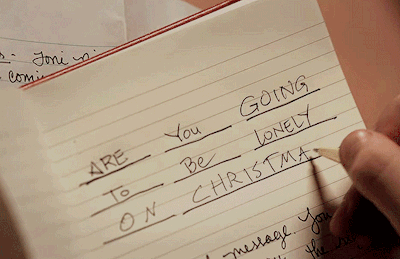 Toni
comi
ARE You GOING
To Be LONELY
ON CHRISTMA
message. You
the